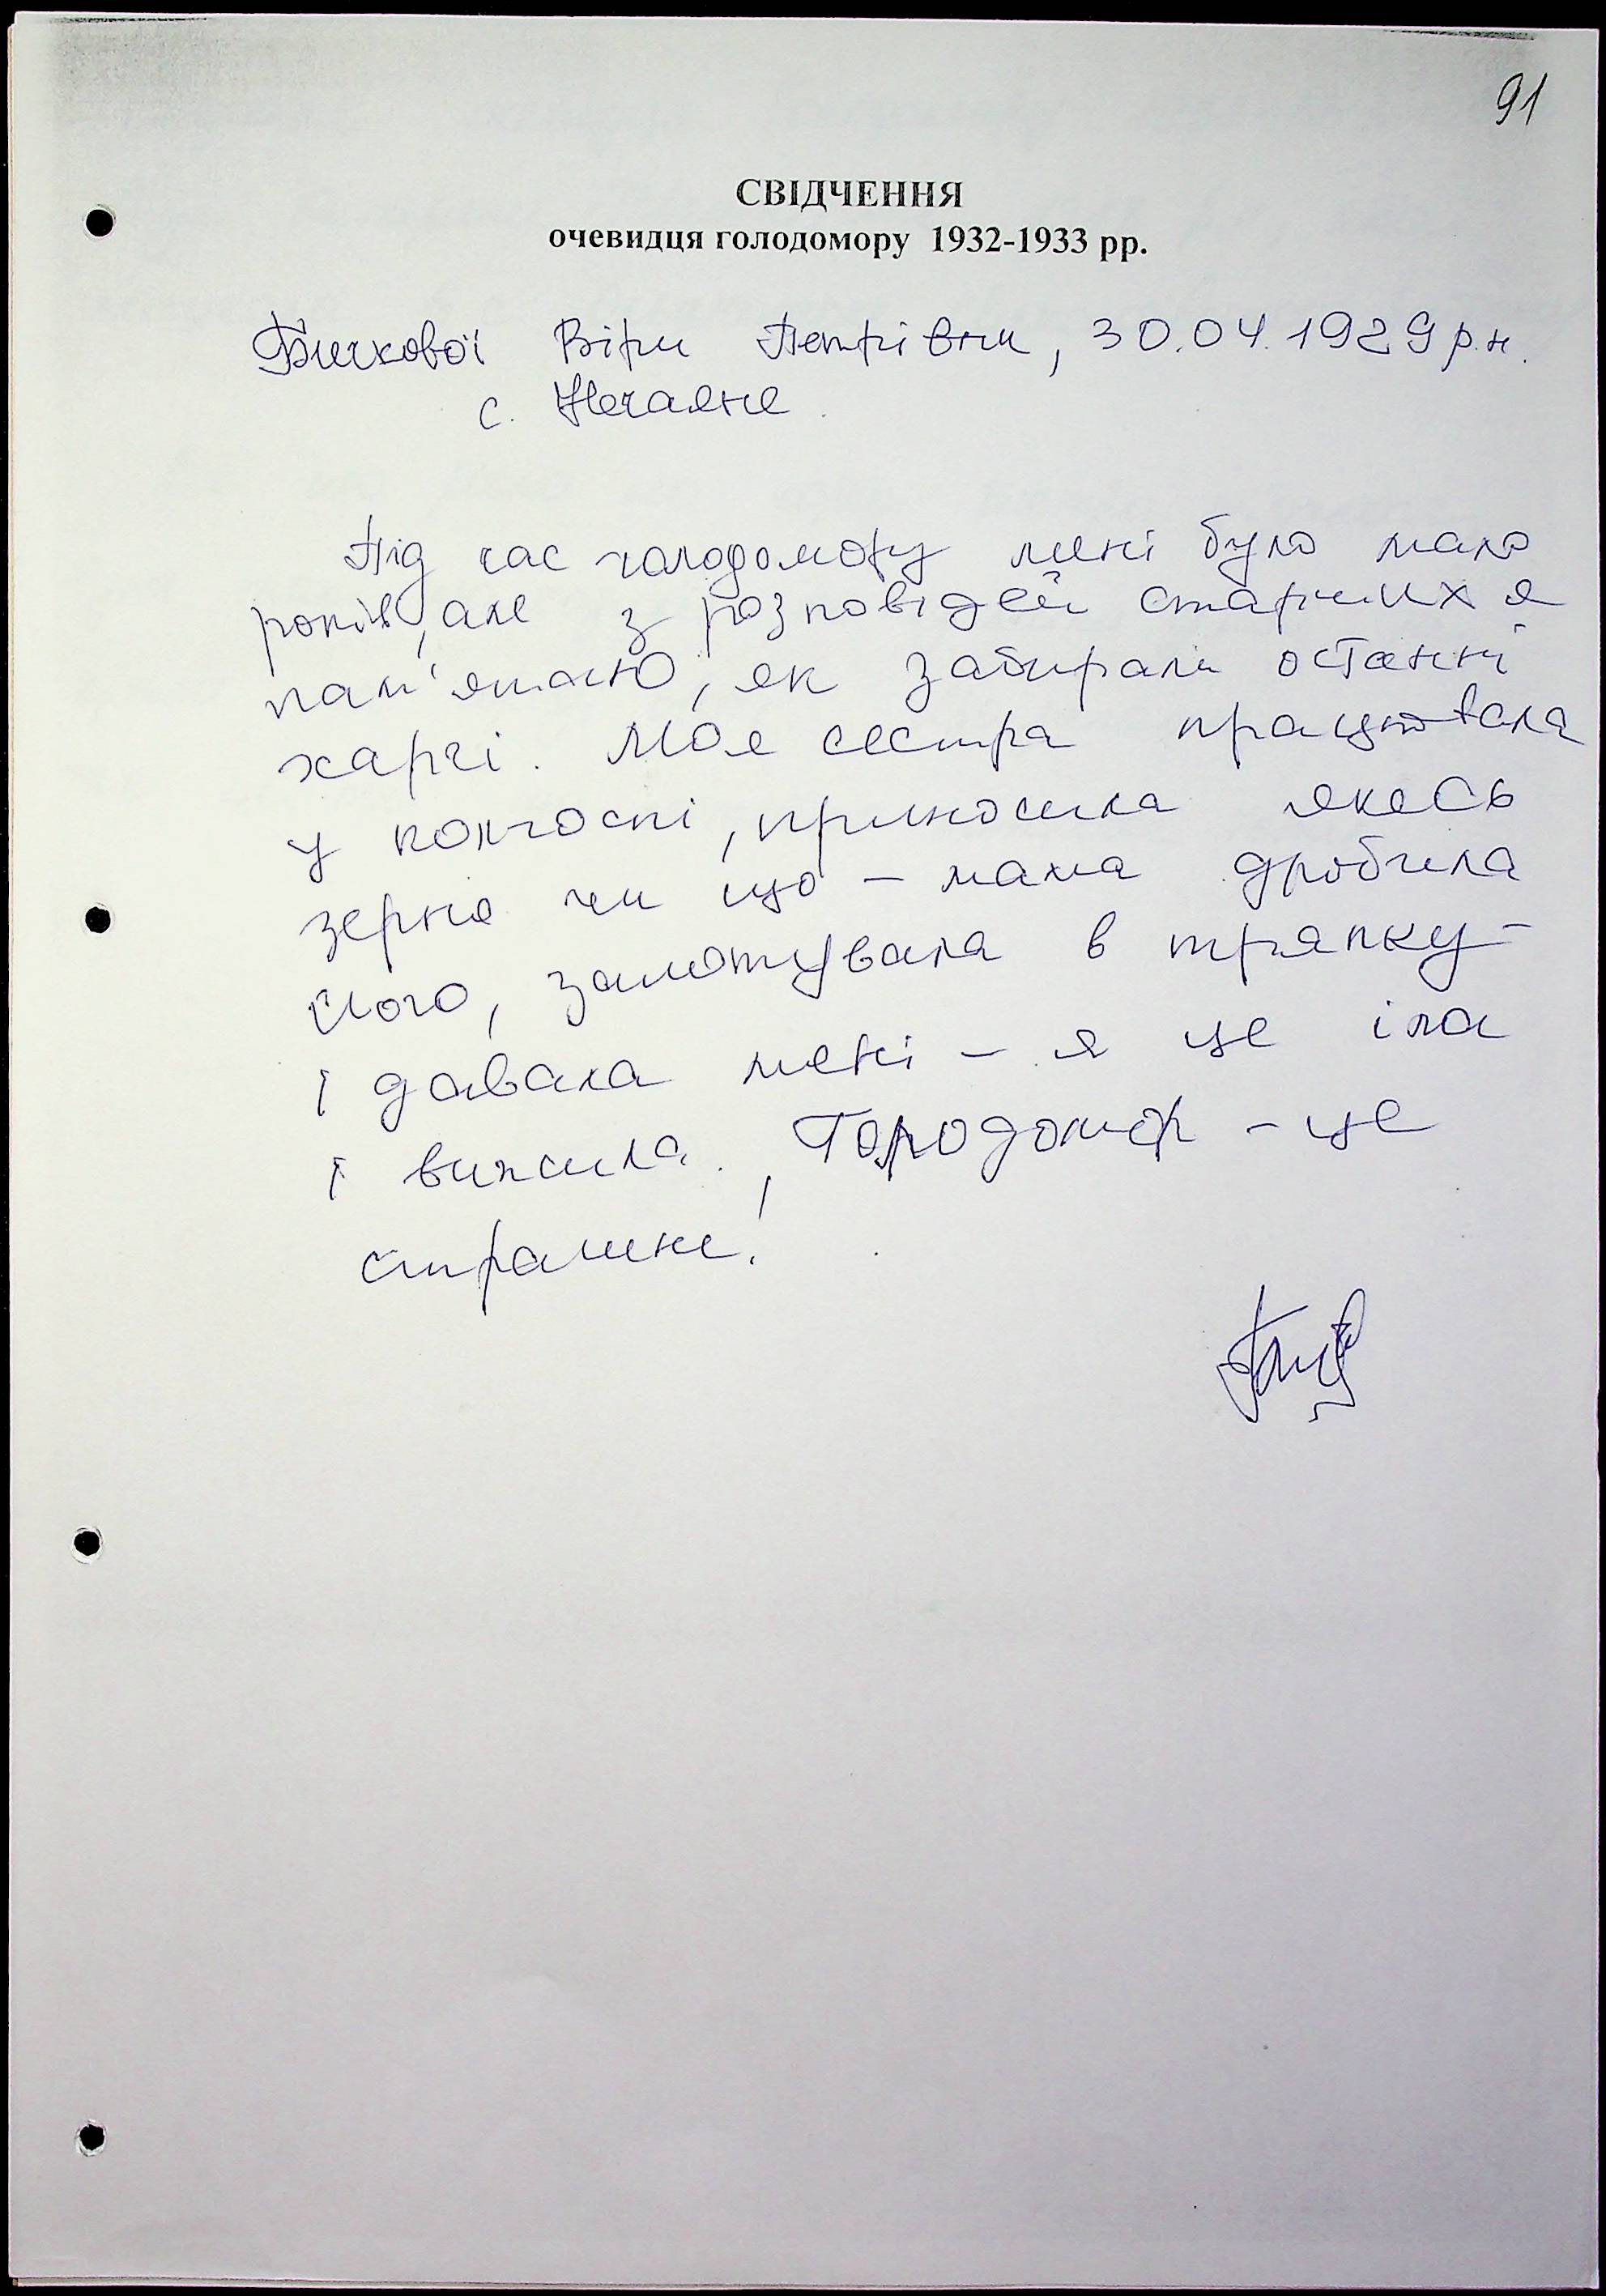 91
СВІДЧЕННЯ
очевидця голодомору 1932-1933 рр.
Бичкової Віри Петрівни, 30.04.1929 р.н.
с. Нечаяне
Під час голодомору мені було мало
років, але з розповідей старших я
пам'ятаю, як забирали останні
харчі. Моя сестра працювала
у колгоспі, приносила якесь
зерно чи що – мама дробила
його, замотувала в тряпку –
і давала мені – я це їла
і вижила. Голодомор – це
страшне!